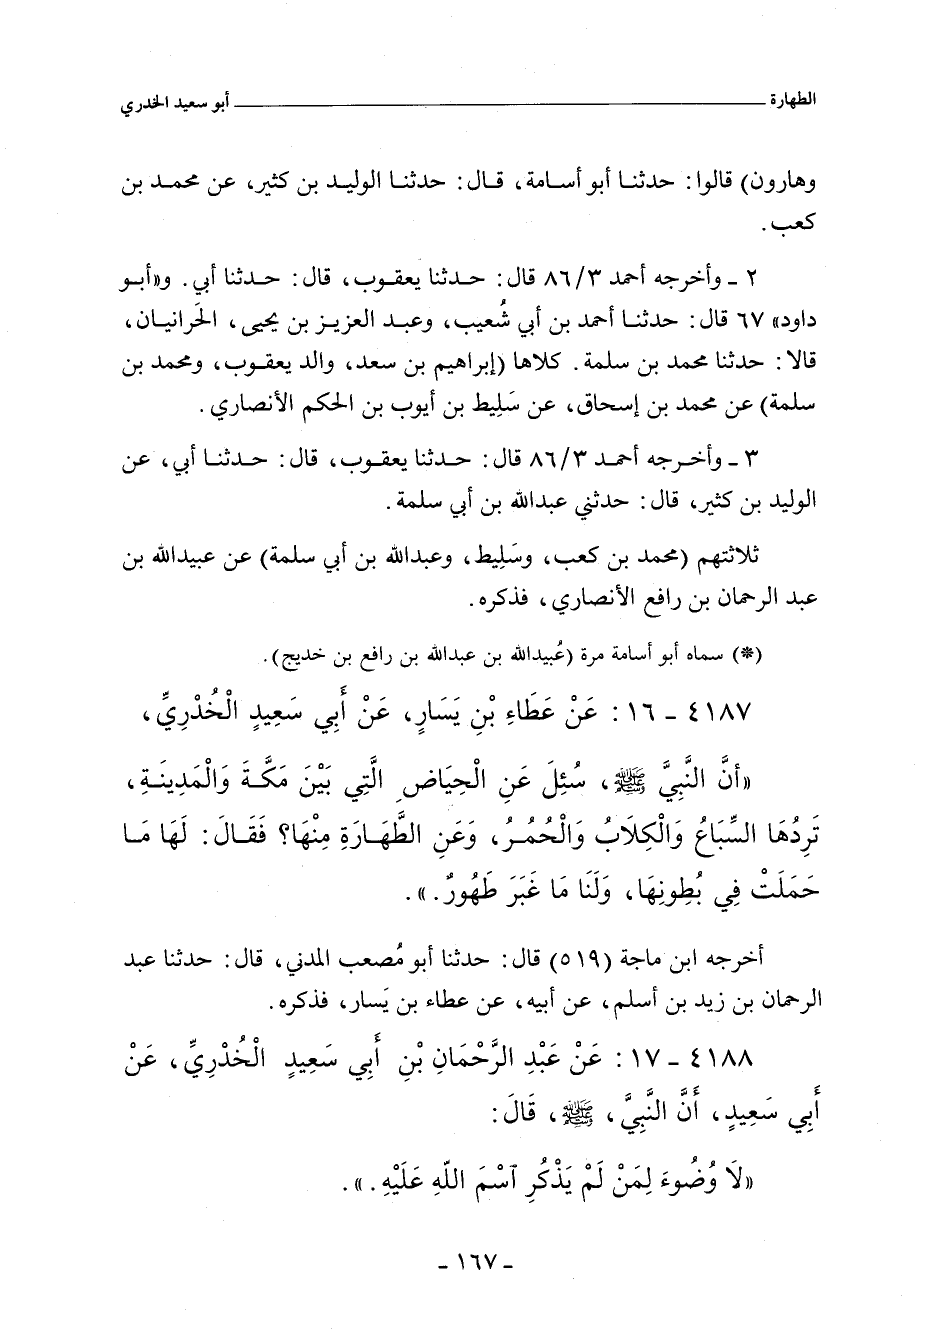 الطهارة ــــــــــــــــــــــــــــــــــــــــــ أبو سعيد الخدري
وهارون) قالوا: حدثنا أبو أسامة، قال: حدثنا الوليد بن كثير، عن محمد بن
كعب.
٢ ـ وأخرجه أحمد ٨٦/٣ قال: حدثنا يعقوب، قال: حدثنا أبي. و«أبو
داود» ٦٧ قال: حدثنا أحمد بن أبي شُعيب، وعبد العزيز بن يحيى، الحَرانيان،
قالا: حدثنا محمد بن سلمة. كلاها (إبراهيم بن سعد، والد يعقوب، ومحمد بن
سلمة) عن محمد بن إسحاق، عن سَلِيط بن أيوب بن الحكم الأنصاري.
٣ ـ وأخرجه أحمد ٨٦/٣ قال: حدثنا يعقوب، قال: حدثنا أبي، عن
الوليد بن كثير، قال: حدثني عبدالله بن أبي سلمة.
ثلاثتهم (محمد بن كعب، وسَلِيط، وعبدالله بن أبي سلمة) عن عبيدالله بن
عبد الرحمان بن رافع الأنصاري، فذكره.
(*) سماه أبو أسامة مرة (عُبيدالله بن عبدالله بن رافع بن خديج).
٤١٨٧ ـ ١٦: عَنْ عَطَاءِ بْنِ يَسَارٍ، عَنْ أَبِي سَعِيدٍ الْخُدْرِيِّ،
«أَنَّ النَّبِيَّ ﷺ، سُئِلَ عَنِ الْحِيَاضِ الَّتِي بَيْنَ مَكَّةَ وَالْمَدِينَةِ،
تَرِدُهَا السِّبَاعُ وَالْكِلَابُ وَالْحُمُرُ، وَعَنِ الطَّهَارَةِ مِنْهَا؟ فَقَالَ: لَهَا مَا
حَمَلَتْ فِي بُطُونِهَا، وَلَنَا مَا غَبَرَ طَهُورٌ.».
أخرجه ابن ماجة (٥١٩) قال: حدثنا أبو مُصعب المدني، قال: حدثنا عبد
الرحمان بن زيد بن أسلم، عن أبيه، عن عطاء بن يَسار، فذكره.
٤١٨٨ ـ ١٧: عَنْ عَبْدِ الرَّحْمَانِ بْنِ أَبِي سَعِيدٍ الْخُدْرِيِّ، عَنْ
أَبِي سَعِيدٍ، أَنَّ النَّبِيَّ، ﷺ، قَالَ:
«لَا وُضُوءَ لِمَنْ لَمْ يَذْكُرِ ٱسْمَ اللَّهِ عَلَيْهِ.».
ـ ١٦٧ ـ